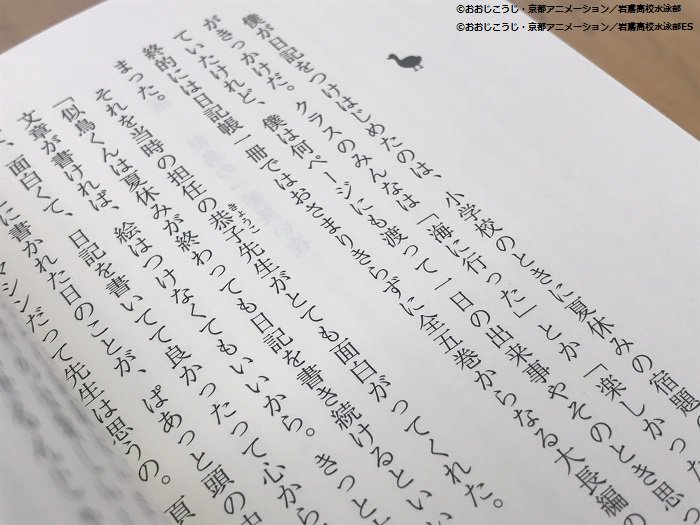 ©おおじこうじ・京都アニメーション／岩鳶高校水泳部
©おおじこうじ・京都アニメーション／岩鳶高校水泳部ES
僕が日記をつけはじめたのは、小学校のときに夏休みの宿題
がきっかけだ。クラスのみんなは「海に行った」とか「楽しかっ
ていたけれど、僕は何ページにも渡って一日の出来事やそのとき思
終的には日記帳一冊ではおさまりきらずに全五巻からなる大長編の
まった。
それを当時の担任の恭子先生がとても面白がってくれた。
きょうこ
「似鳥くんは夏休みが終わっても日記を書き続けるとい
文章が書ければ、絵はつけなくてもいいから。きっと
、面白くて、日記を書いてて良かったって心から
に書かれた日のことが、ぱあっと頭の
マシンだって先生は思うの。頁